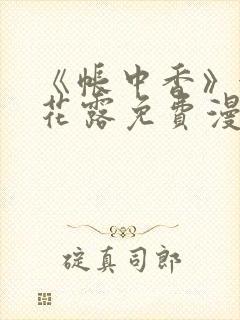 《帐中香》
花露免費漫
碇真司郎